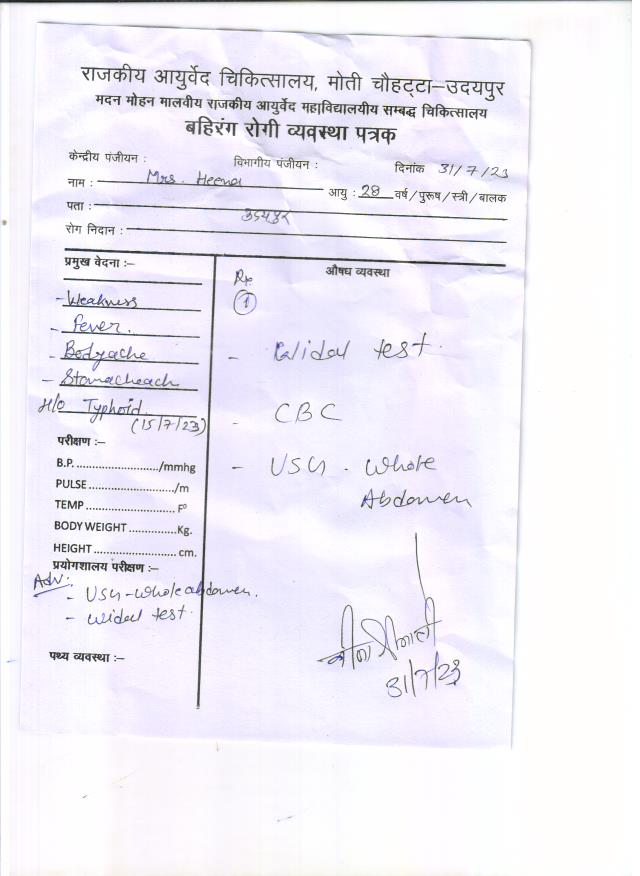 राजकीय आयुर्वेद चिकित्सालय, मोती चौहट्टा–उदयपुर
मदन मोहन मालवीय राजकीय आयुर्वेद महाविद्यालयीय सम्बद्ध चिकित्सालय
बहिरंग रोगी व्यवस्था पत्रक
केन्द्रीय पंजीयन : विभागीय पंजीयन : दिनांक 31/7/23
नाम : Mrs. Heena आयु : 28 वर्ष/पुरूष/स्त्री/बालक
पता : उदयपुर
रोग निदान :
प्रमुख वेदना :–
- Weakness
- Fever.
- Bodyache
- Stomacheach
H/o Typhoid
(15/7/23)
परीक्षण :–
B.P. ........................../mmhg
PULSE ........................../m
TEMP ............................ Fº
BODY WEIGHT ...............Kg.
HEIGHT .......................... cm.
प्रयोगशालय परीक्षण :–
Adv:
- USG-whole abdomen.
- widal test
पथ्य व्यवस्था :–
औषध व्यवस्था
Rx
1
- Widal test.
- CBC
- USG. Whole
Abdomen
31/7/23